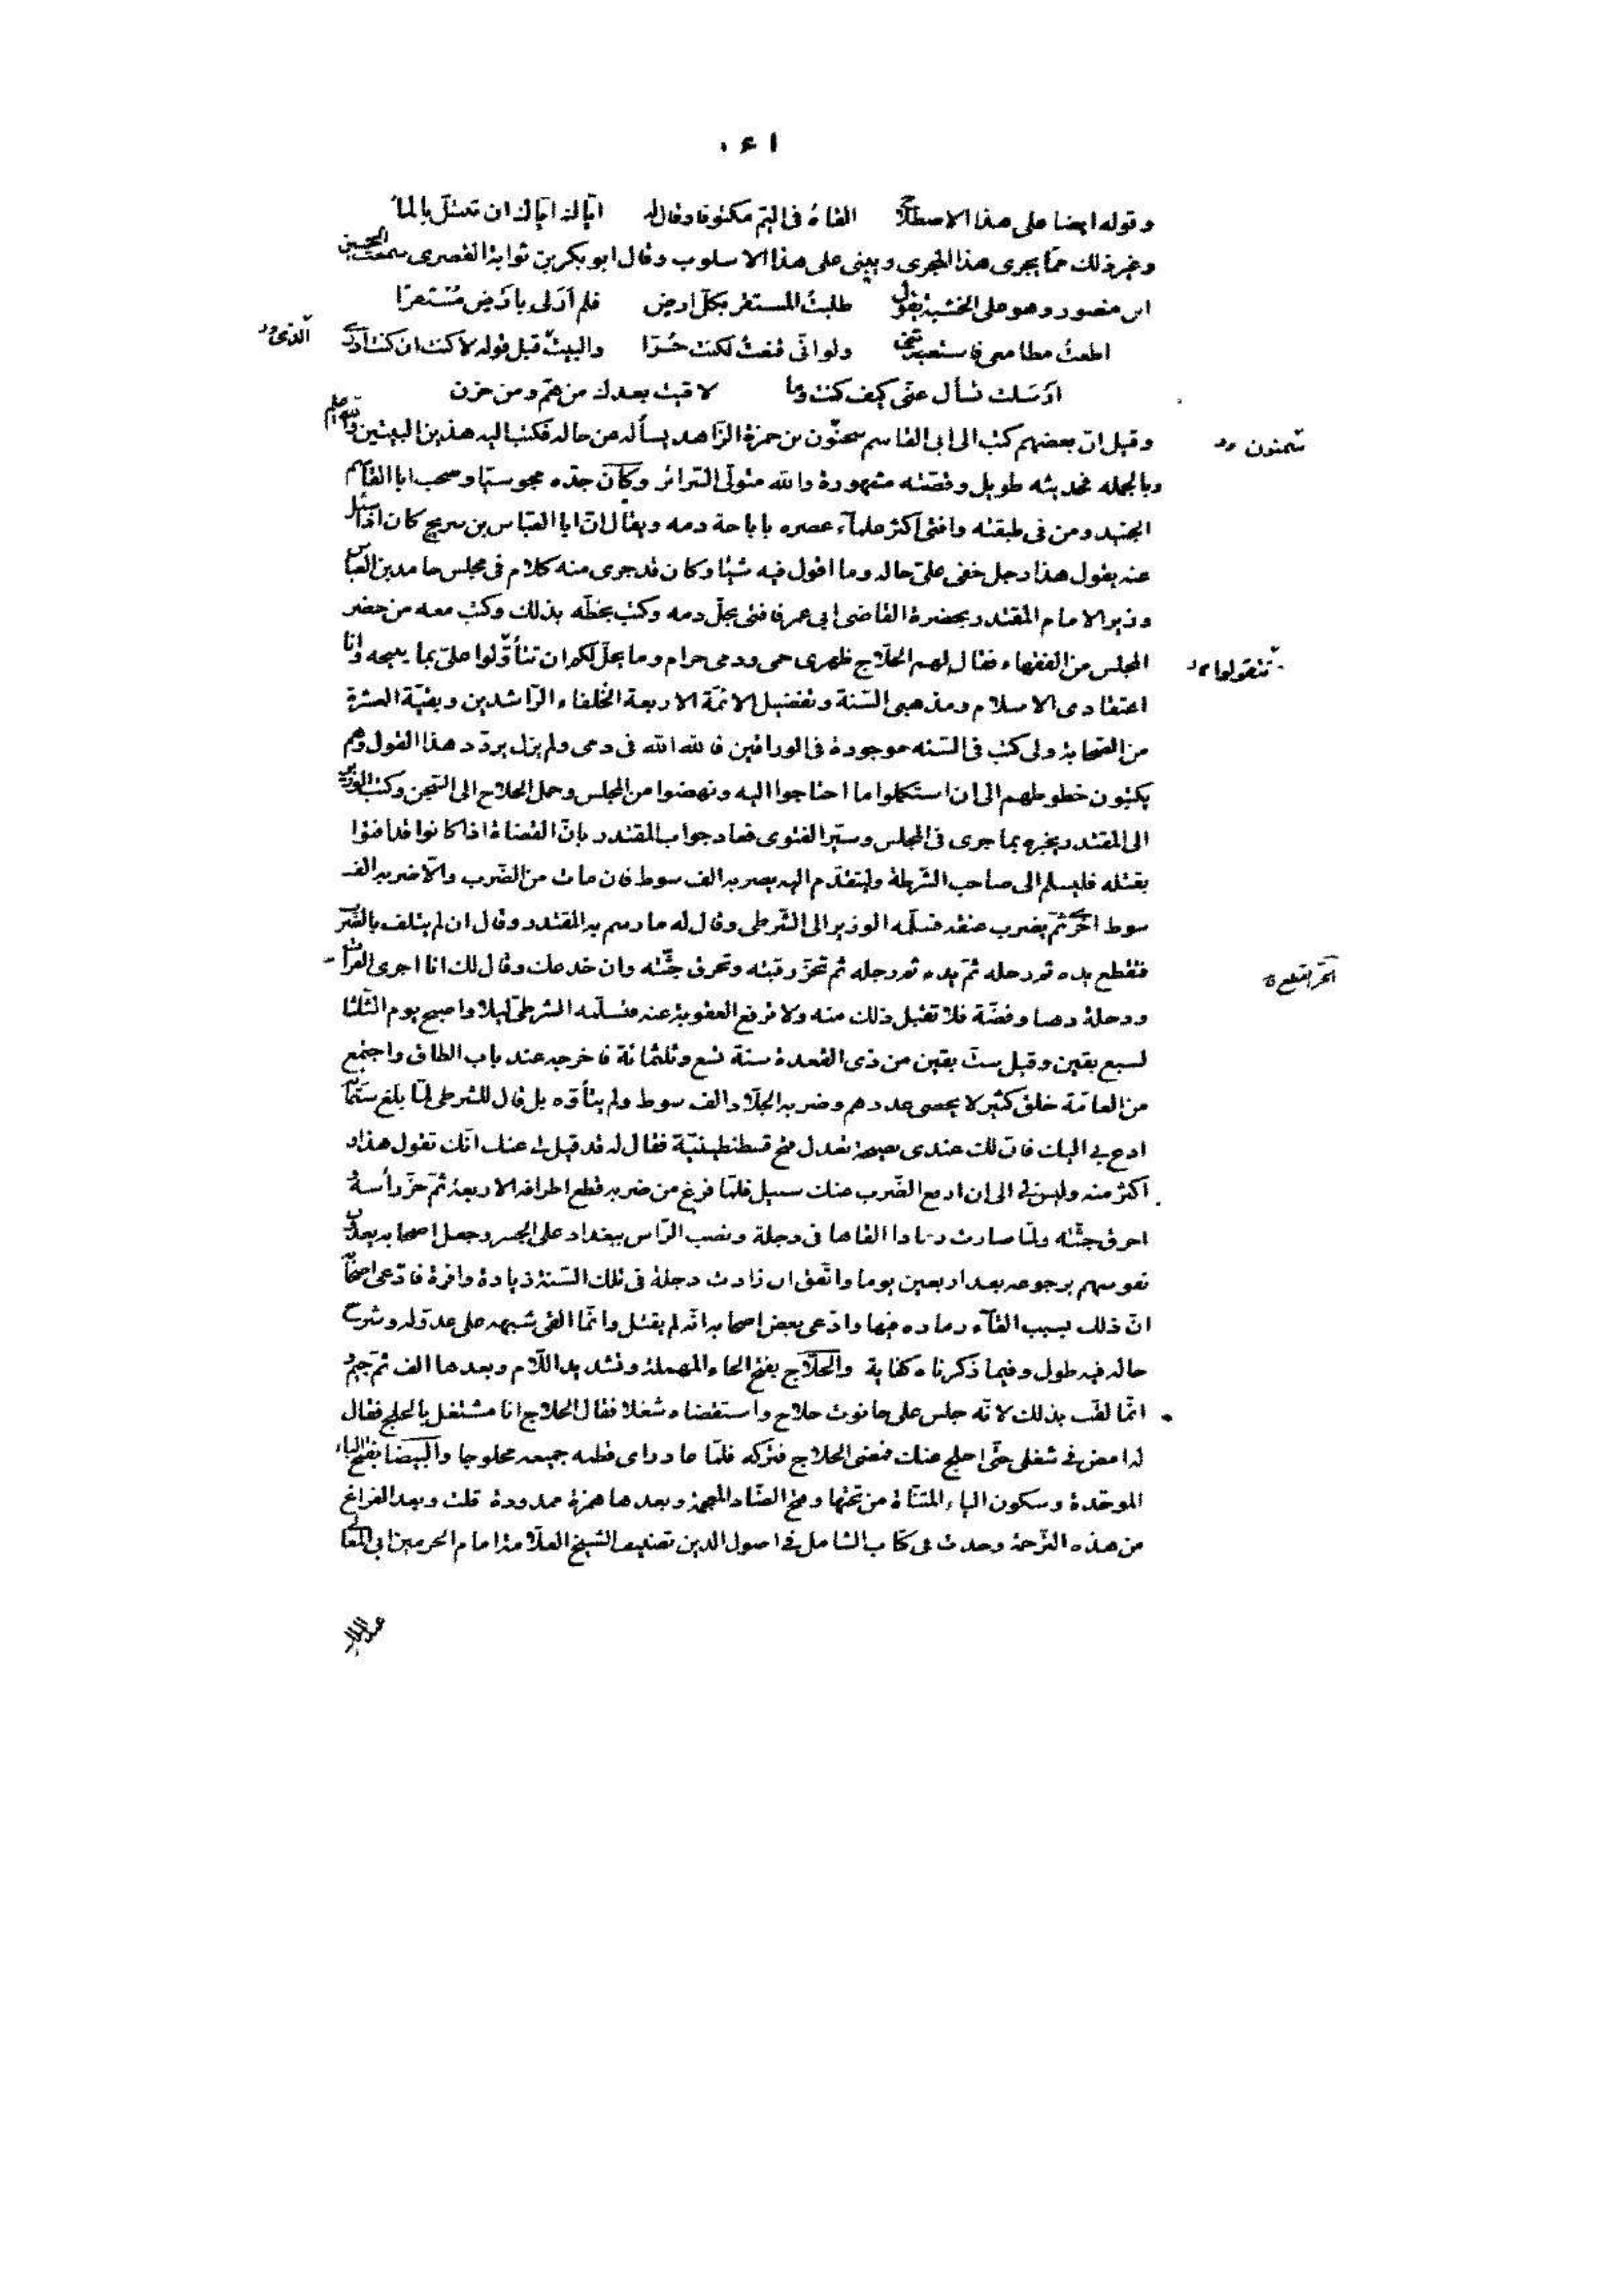 ١٤٠
وقوله ايضا على هذا الاصطلاح القاه فى اليم مكتوفا وقال له اياك اياك ان تبتل بالماء
وغير ذلك مما يجرى هذا المجرى ويبنى على هذا الاسلوب وقال ابو بكر بن ثوابة القصرى سمعت الحسين
ابن منصور وهو على الخشبة يقول طلبتُ المستقر بكل ارض فلم أرَ لى بأرض مُستقرا
اطعتُ مطامعى فاستعبدتنى ولو انّى قنعتُ لكنت حُرّا والبيت قبل قوله لا كنت ان كنت ادرى
الذى
ارسلت تسأل عنّى كيف كنت وما لاقيت بعدك من همّ ومن حزن
وقيل انّ بعضهم كتب الى ابى القاسم سمنون بن حمزة الزاهد يسأله عن حاله فكتب اليه هذين البيتين والله اعلم
سمنون
وبالجمله فحديثه طويل وقصّته مشهورة والله متولّى السّرائر وكان جدّه مجوسيّا وصحب ابا القاسم
الجنيد ومن فى طبقته وافتى اكثر علمآء عصره باباحة دمه ويقال انّ ابا العبّاس بن سريج كان اذا سئل
عنه يقول هذا رجل خفى علىّ حاله وما اقول فيه شيئا وكان قد جرى منه كلام فى مجلس حامد بن العباس
وزير الامام المقتدر بحضرة القاضى ابى عمر فافتى بحلّ دمه وكتب بخطّه بذلك وكتب معه من حضر
المجلس من الفقهاء فقال لهم الحلّاج ظهرى حمى ودمى حرام وما يحلّ لكم ان تتأوّلوا علىّ بما يبيحه وانا
تتقولوا
اعتقادى الاسلام ومذهبى السّنة وتفضيل الائمّة الاربعة الخلفاء الرّاشدين وبقيّة العشرة
من الصّحابة ولى كتب فى السّنه موجودة فى الوراقين فالله الله فى دمى ولم يزل يردّد هذا القول وهم
يكتبون خطوطهم الى ان استكملوا ما احتاجوا اليه ونهضوا من المجلس وحمل الحلاج الى السّجن وكتب الوزير
الى المقتدر يخبره بما جرى فى المجلس وسيّر الفتوى فعاد جواب المقتدر بانّ القضاة اذا كانوا قد افتوا
بقتله فليسلم الى صاحب الشّرطة وليتقدّم اليه بضربه الف سوط فان مات من الضّرب والّا ضربه الف
سوط اخرى ثمّ يضرب عنقه فسلّمه الوزير الى الشّرطى وقال له ما رسم به المقتدر وقال ان لم يتلف بالضّرب
فتقطع يده ثم رجله ثمّ يده ثم رجله ثم تحزّ رقبته وتحرق جثّته وان خدعك وقال لك انا اجرى الفرات
ودجلة ذهبا وفضّة فلا تقبل ذلك منه ولا ترفع العقوبة عنه فتسلّمه الشرطىّ ليلا واصبح يوم الثّلثا
لسبع بقين وقيل ستّ بقين من ذى القعدة سنة تسع وثلثمائة فاخرجه عند باب الطاق واجتمع
من العامّة خلق كثير لا يحصى عددهم وضربه الجلّاد الف سوط ولم يتأوّه بل قال للشرطى لمّا بلغ ستّمائة
ادع بى اليك فانّ لك عندى نصيحة تعدل فتح قسطنطينيّة فقال له قد قيل لى عنك انّك تقول هذا و
اكثر منه وليس لى الى ان ارفع الضّرب عنك سبيل فلمّا فرغ من ضربه قطع اطرافه الاربعة ثمّ حزّ رأسه و
احرق جثّته ولمّا صارت رمادا القاها فى دجلة ونصب الرّاس ببغداد على الجسر وجعل اصحابه يعدون
نفوسهم برجوعه بعد اربعين يوما واتّفق ان زادت دجلة فى تلك السّنة زيادة وافرة فادّعى اصحابه
انّ ذلك بسبب القآء رماده فيها وادّعى بعض اصحابه انّه لم يقتل وانّما القى شبهه على عدوّ له وشرح
حاله فيه طول وفيما ذكرناه كفاية والحلّاج بفتح الحاء المهملة وتشديد اللّام وبعدها الف ثمّ جيم
انّما لقّب بذلك لانّه جلس على حانوت حلاج واستقضاه شغلا فقال الحلاج انا مشتغل بالحلج فقال
له امض فى شغلى حتّى احلج عنك فمضى الحلاج فتركه فلمّا عاد راى قطنه جميعه محلوجا والبيضا بفتح الباء
الموحّدة وسكون الياء المثنّاة من تحتها وفتح الضّاد المعجمة وبعدها همزة ممدودة قلت وبعد الفراغ
من هذه التّرجمة وجدت فى كتاب الشامل فى اصول الدين تصنيف الشيخ العلّامة امام الحرمين ابى المعالى